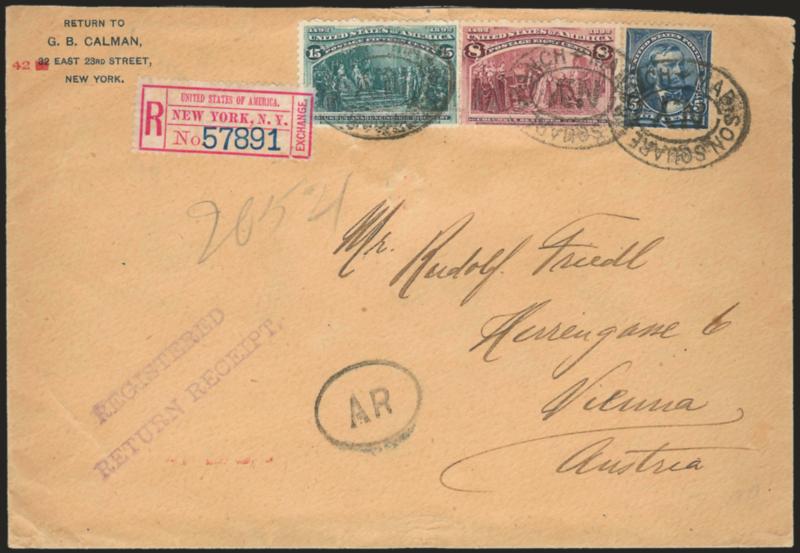 RETURN TO
G. B. CALMAN,
42 32 EAST 23RD STREET,
NEW YORK.
R
UNITED STATES OF AMERICA.
NEW YORK, N. Y.
No 57891
EXCHANGE
1492 1892
UNITED STATES OF AMERICA
15 POSTAGE FIFTEEN CENTS 15
COLUMBUS ANNOUNCING HIS DISCOVERY
1492 1892
UNITED STATES OF AMERICA
8 POSTAGE EIGHT CENTS 8
UNITED STATES POSTAGE
5 5
FIVE CENTS
BRANCH MADISON SQUARE
2654
Mr. Rudolf. Friedl
Herrengasse 6
Vienna
Austria
REGISTERED
RETURN RECEIPT.
AR